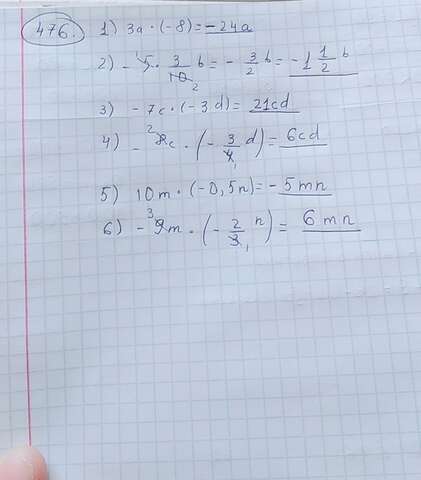 476. 1) 3a · (-8) = -24a
2) -5 · 3/10 b = - 3/2 b = -1 1/2 b
3) -7c · (-3d) = 21cd
4) -8c · (- 3/4 d) = 6cd
5) 10m · (-0,5n) = -5mn
6) -9m · (- 2/3 n) = 6mn